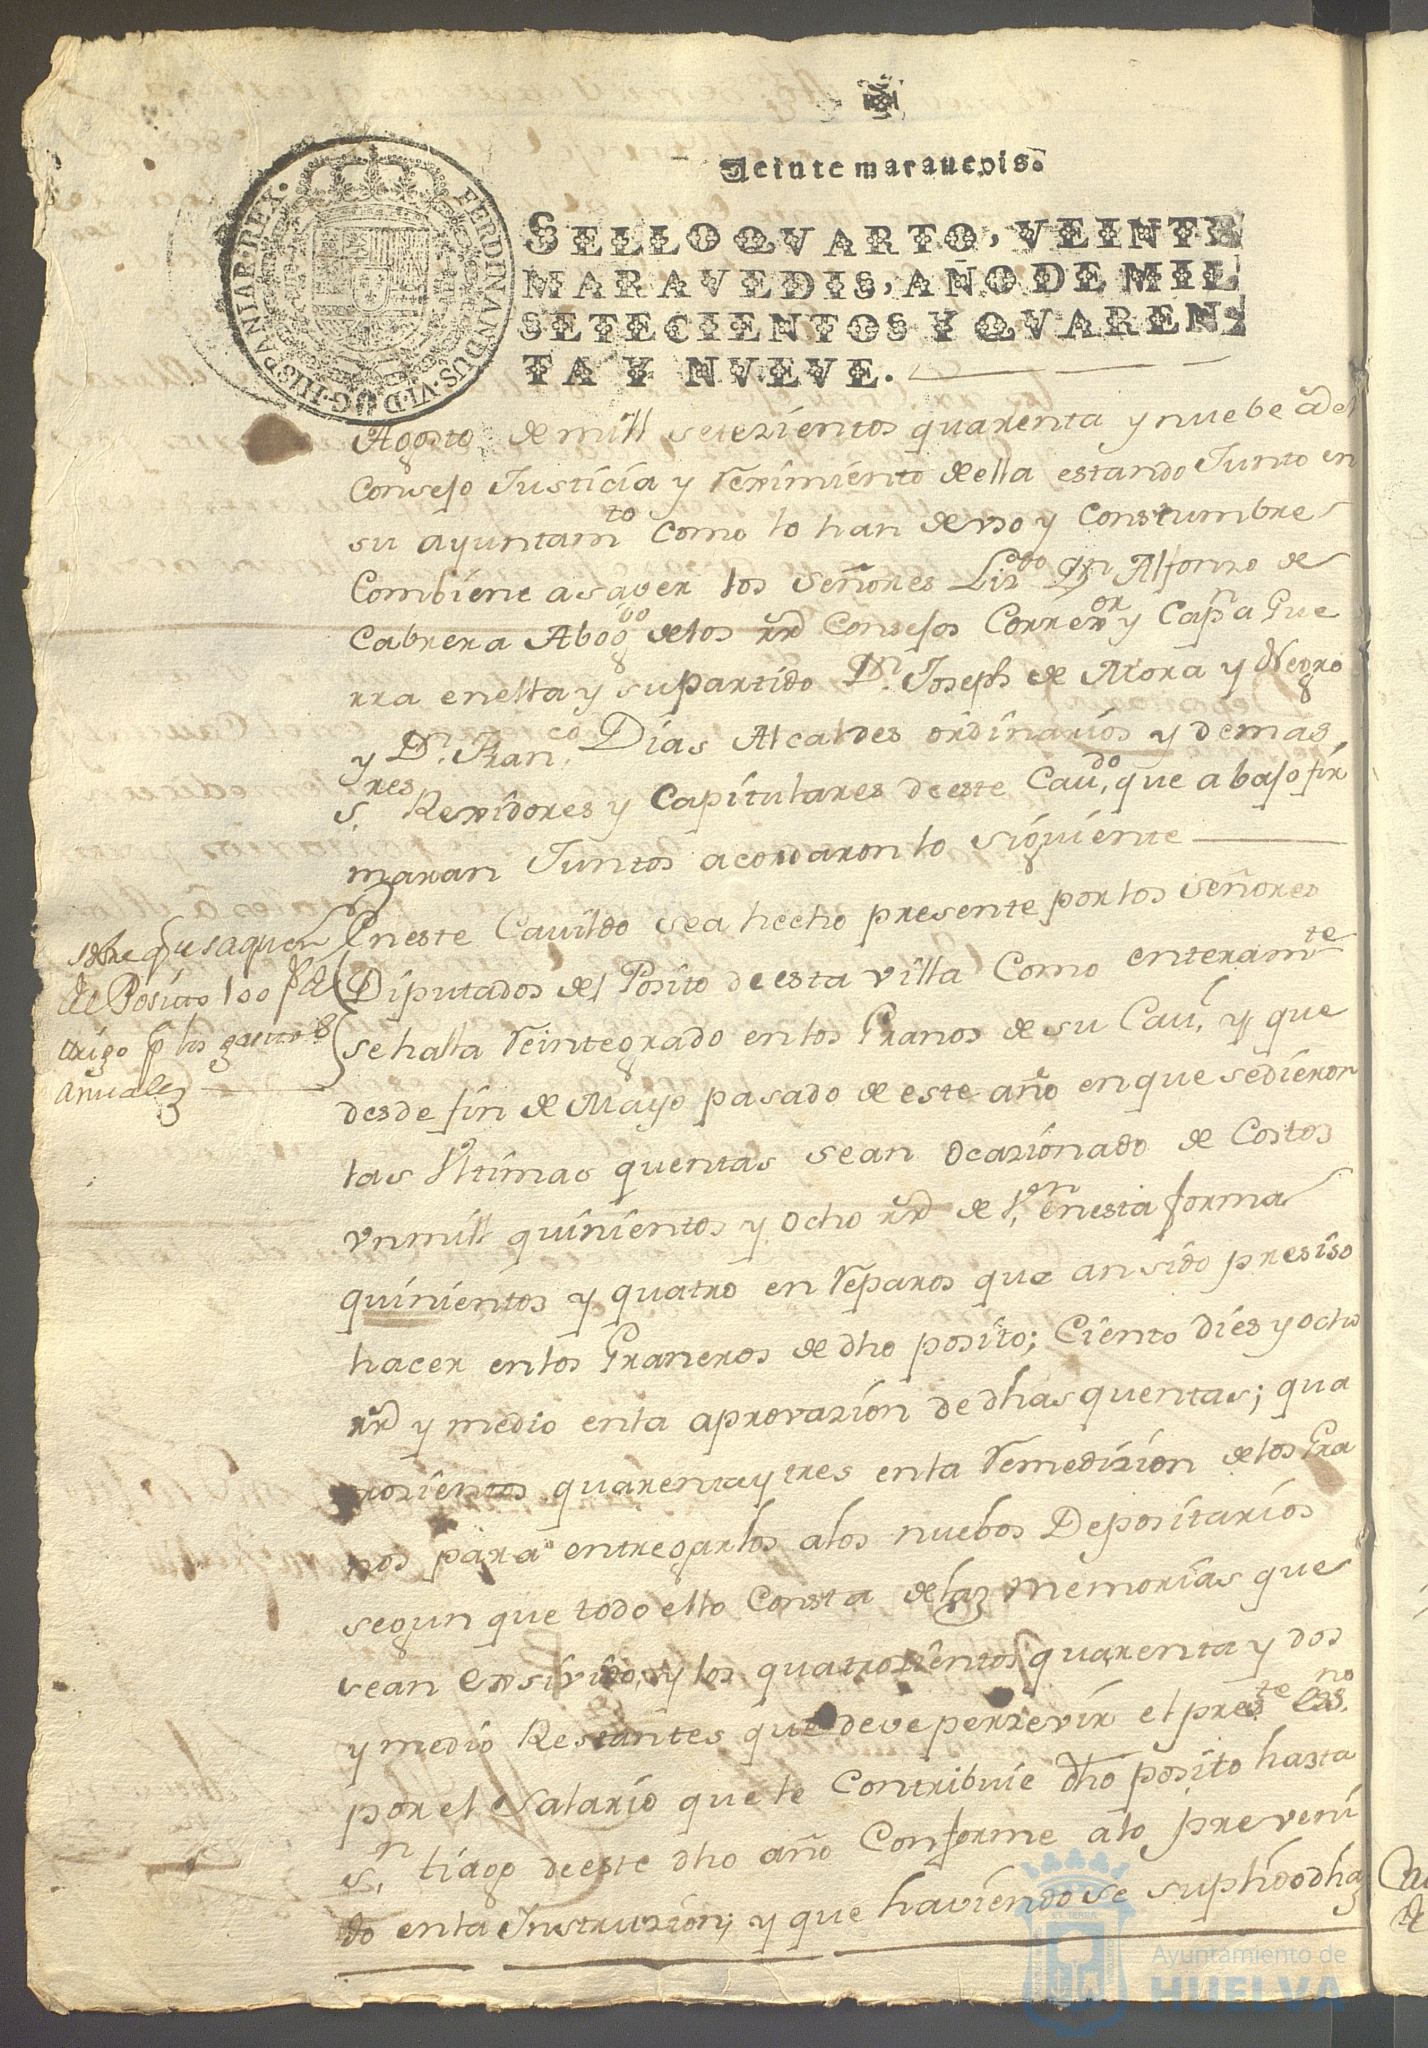 Veinte maravedis.
SELLO QVARTO, VEINTE
MARAVEDIS, AÑO DE MIL
SETECIENTOS Y QVAREN-
TA Y NVEVE.
FERDINANDUS·VI·D·G·HISPANIAR·REX·
Agosto de mill setezientos quarenta y nuebe el
Consejo Justicia y Reximiento de ella estando Junto en
su ayuntamto como lo han de vso y Constumbre
Combiene a saver los Señores Lizdo Dn Alfonso de
Cabrera Abogdo de los rrs Consejos Correxor y Capn a Gue
rra en ella y su partido Dn. Joseph de Mora y Negro
y Dn. Franco. Dias Alcaldes ordinarios y demas
sres. Rexidores y Capitulares de este Cavdo, que abajo fir
maran Juntos acordaron lo siguiente
En este Cavildo sea hecho presente por los Señores
Diputados del Posito de esta villa Como enteramte
se halla Reintegrado en los Granos de su Caul, y que
desde fin de Mayo pasado de este año en que se dieron
las Vltimas quentas sean Ocazionado de Costos
vn mill quinientos y ocho rrs de Von. en esta forma
quinientos y quatro en Reparos que an sido presiso
hacer en los Graneros de dho posito; Ciento dies y ocho
rrs y medio en la aprovazion de dhas quentas; qua
trozientos quarenta y tres en la Remedizion de los Gra
nos para entregarlos a los nuebos Depositarios
segun que todo ello Consta de las memorias que
sean Exsivido, y los quatrozientos quarenta y dos
y medio Restantes que deve perzevir el preste Essno.
por el Salario que le Contribuie dho posito hasta
Sn. tiago de este dho año Conforme a lo preveni
do en la Instruzion; y que haviendose suplido dhas
sobre que saquen
del Posito 100 fs de
trigo pa los gastos
anuales
Ayuntamiento de
HUELVA